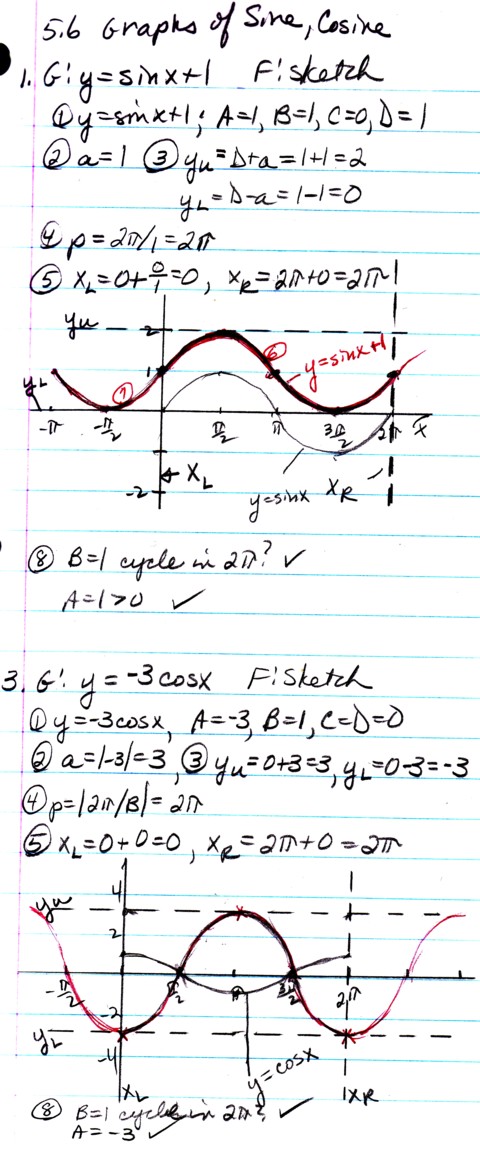 5.6 Graphs of Sine, Cosine
1. G: y=sinx+1 F: sketch
① y=sinx+1; A=1, B=1, C=0, D=1
② a=1 ③ yu=D+a=1+1=2
yL=D-a=1-1=0
④ p=2π/1=2π
⑤ xL=0+0/1=0, xR=2π+0=2π
yu 2
⑥ y=sinx+1
1
yL ⑦
-π -π/2 π/2 π 3π/2 2π x
← xL y=sinx xR
-2
⑧ B=1 cycle in 2π? ✓
A=1>0 ✓
3. G: y=-3cosx F: Sketch
① y=-3cosx, A=-3, B=1, C=D=0
② a=|-3|=3, ③ yu=0+3=3, yL=0-3=-3
④ p=|2π/B|=2π
⑤ xL=0+0=0, xR=2π+0=2π
4
yu
2
-π/2 π/2 π 3π/2 2π
-2
yL
-4
y=cosx
xL xR
⑧ B=1 cycle in 2π? ✓
A=-3 ✓